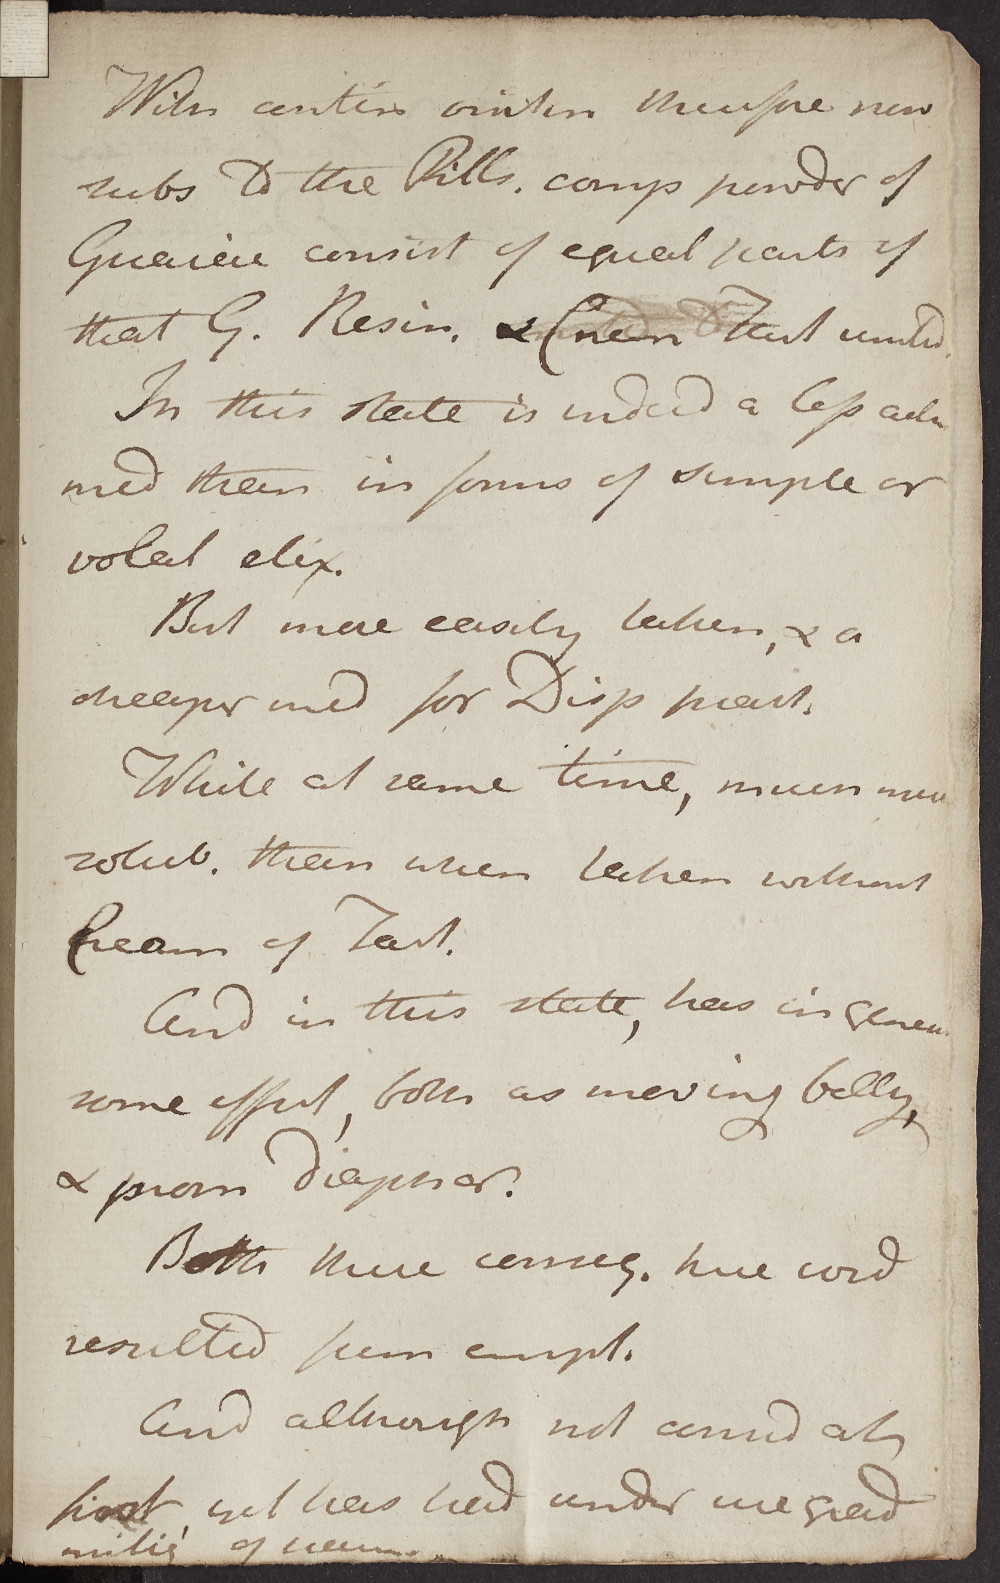 With anti therefore now
subs to the Pills. comp powder of
Guaiac consist of equal parts of
that G. Resin. & Cream Tart united.
In this state is indeed a less
med than in forms of simple or
volat elix.
But more easily taken, & a
cheaper med for Disp pract.
While at same time, much more
solub. than when taken without
Cream of Tart.
And in this state, has in general
some effect, both as moving belly,
& prom diaphor.
Both these conseq. here cord
resulted from empl.
And although not
first, yet has had under use grad
mitig of